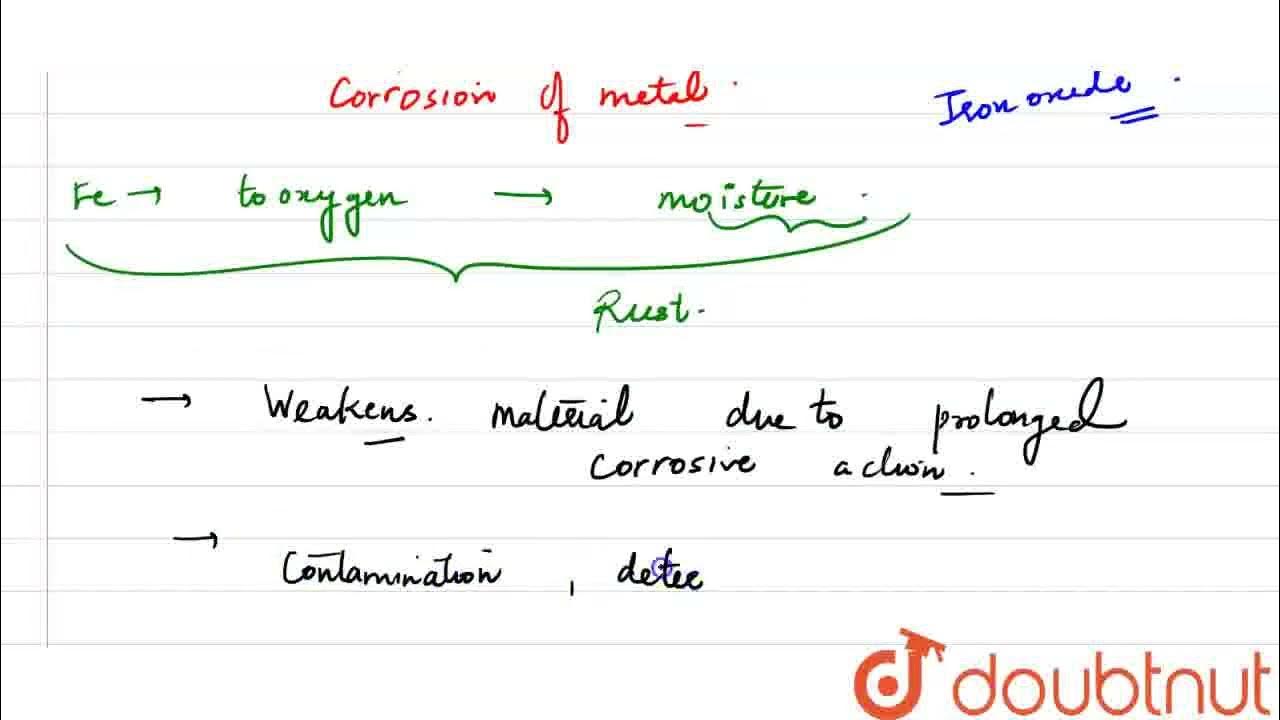 Corrosion of metal.
Iron oxide.
Fe → to oxygen → moisture.
Rust.
→ Weakens. material due to prolonged
corrosive action.
→ Contamination, detec
doubtnut